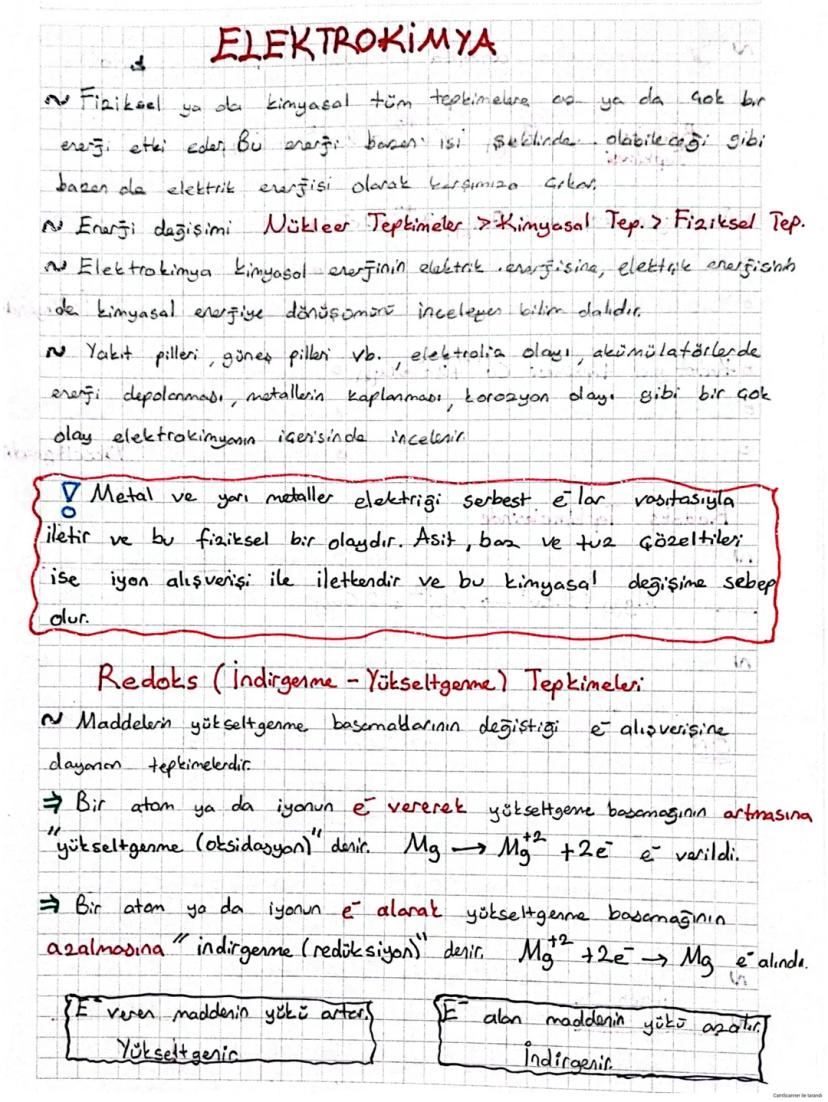 ELEKTROKİMYA
~ Fiziksel ya da kimyasal tüm tepkimelere az ya da çok bir
enerji etki eder. Bu enerji bazen ısı şeklinde olabileceği gibi
bazen de elektrik enerjisi olarak karşımıza çıkar.
~ Enerji değişimi Nükleer Tepkimeler > Kimyasal Tep. > Fiziksel Tep.
~ Elektrokimya kimyasal enerjinin elektrik enerjisine, elektrik enerjisinin
de kimyasal enerjiye dönüşümünü inceleyen bilim dalıdır.
~ Yakıt pilleri, güneş pilleri vb., elektroliz olayı, akümülatörlerde
enerji depolanması, metallerin kaplanması, korozyon olayı gibi bir çok
olay elektrokimyanın içerisinde incelenir.
! Metal ve yarı metaller elektriği serbest e⁻ lar vasıtasıyla
iletir ve bu fiziksel bir olaydır. Asit, baz ve tuz çözeltileri
ise iyon alışverişi ile iletkendir ve bu kimyasal değişime sebep
olur.
Redoks (İndirgenme - Yükseltgenme) Tepkimeleri
~ Maddelerin yükseltgenme basamaklarının değiştiği e⁻ alışverişine
dayanan tepkimelerdir.
⇒ Bir atom ya da iyonun e⁻ vererek yükseltgenme basamağının artmasına
"yükseltgenme (oksidasyon)" denir. Mg → Mg⁺² + 2e⁻ e⁻ verildi.
⇒ Bir atom ya da iyonun e⁻ alarak yükseltgenme basamağının
azalmasına "indirgenme (redüksiyon)" denir. Mg⁺² + 2e⁻ → Mg e⁻ alındı.
E⁻ veren maddenin yükü artar.
Yükseltgenir.
E⁻ alan maddenin yükü azalır.
İndirgenir.
CamScanner ile tarandı